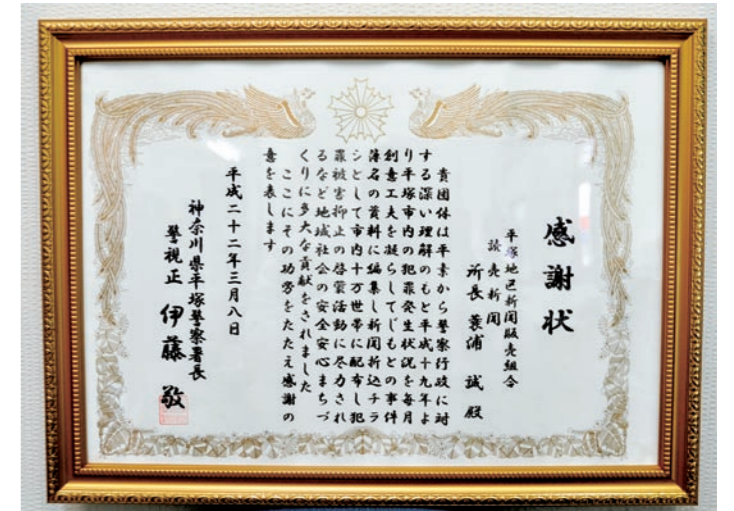 感謝状
平塚地区新聞販売組合
読売新聞
所長 蓑浦 誠 殿
貴団体は平素から警察行政に対
する深い理解のもと平成十九年よ
り平塚市内の犯罪発生状況を毎月
創意工夫を凝らしてじもとの事件
簿名の資料に編集し新聞折込チラ
シとして市内十万世帯に配布し犯
罪被害抑止の啓蒙活動に尽力され
るなど地域社会の安全安心まちづ
くりに多大な貢献をされました
ここにその功労をたたえ感謝の
意を表します
平成二十二年三月八日
神奈川県平塚警察署長
警視正 伊藤 敬